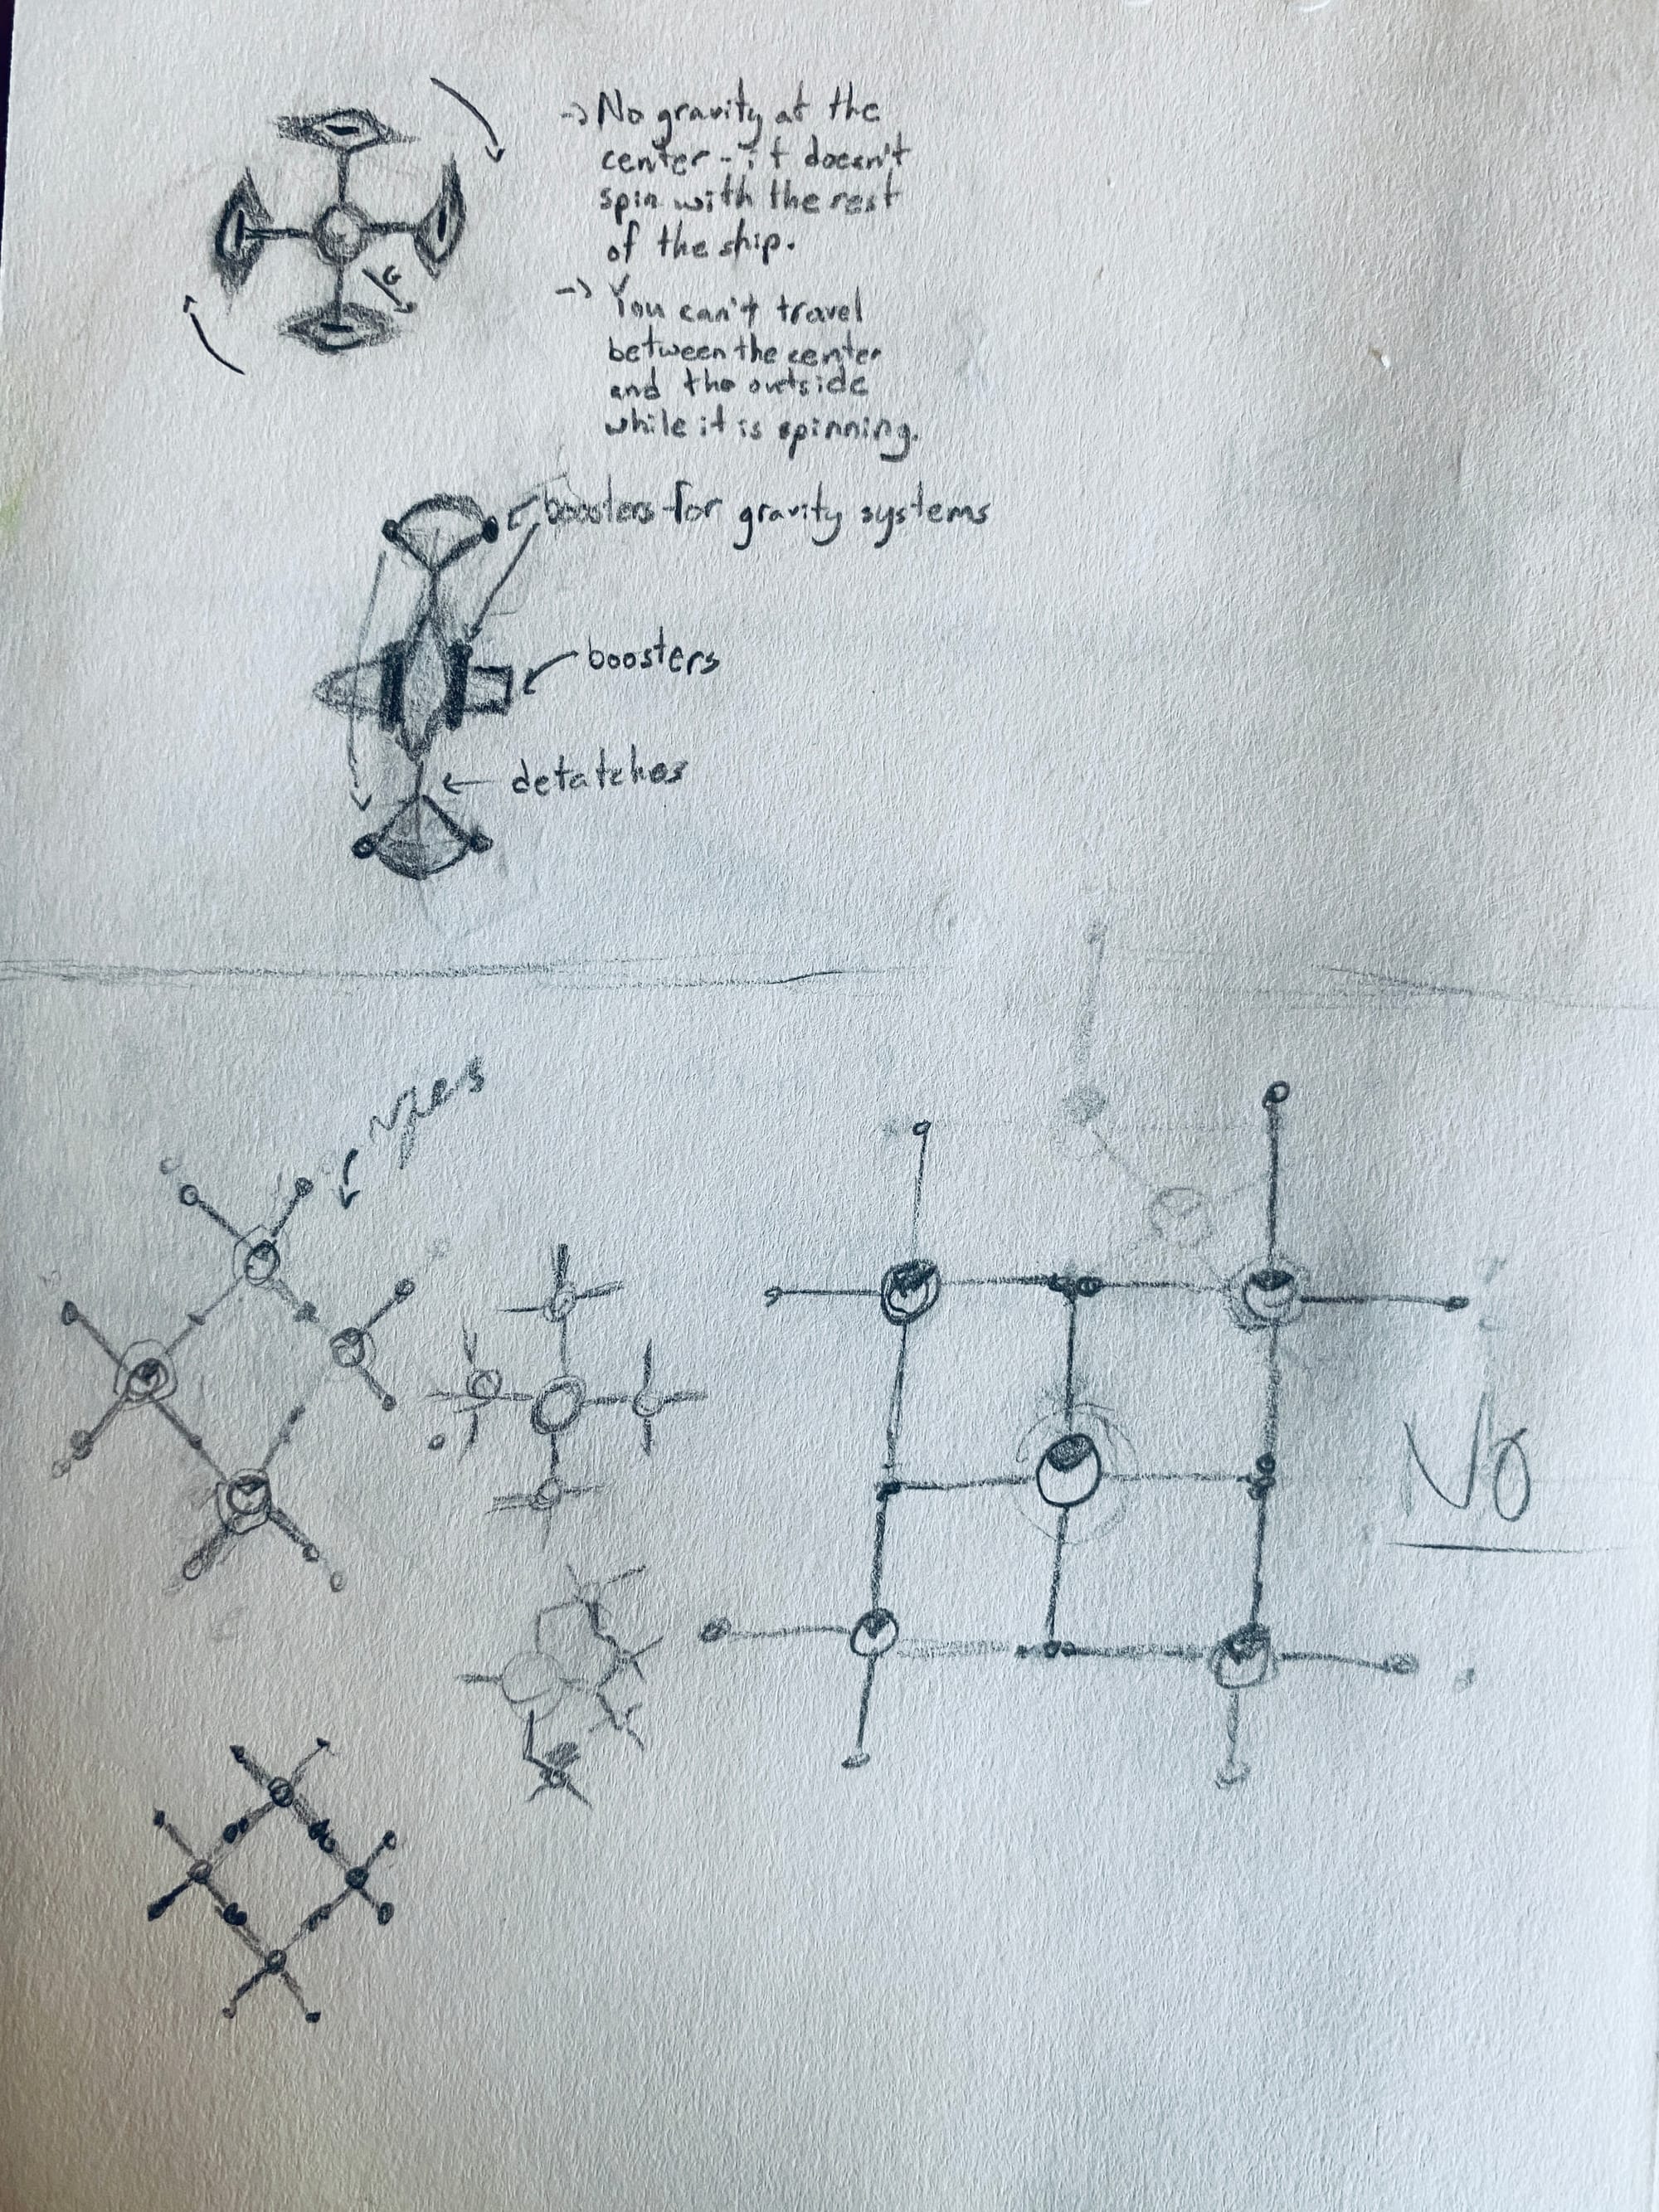 -> No gravity at the
center - it doesn't
spin with the rest
of the ship.
G
-> You can't travel
between the center
and the outside
while it is spinning.
boosters for gravity systems
boosters
detatches
No